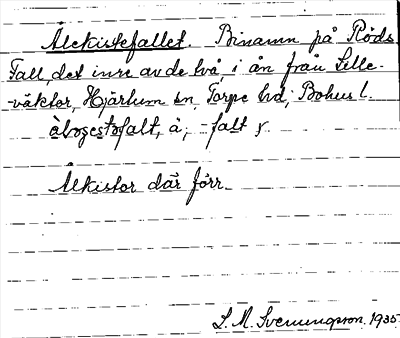 Ålekistefallet. Binamn på Röds
Fall, det inre av de två, i ån från Lelle-
-väktor, Hjärtum sn, Torpe hd, Bohus l.
-falt
Ålkistor där förr.
L. M. Svenungsson. 1935